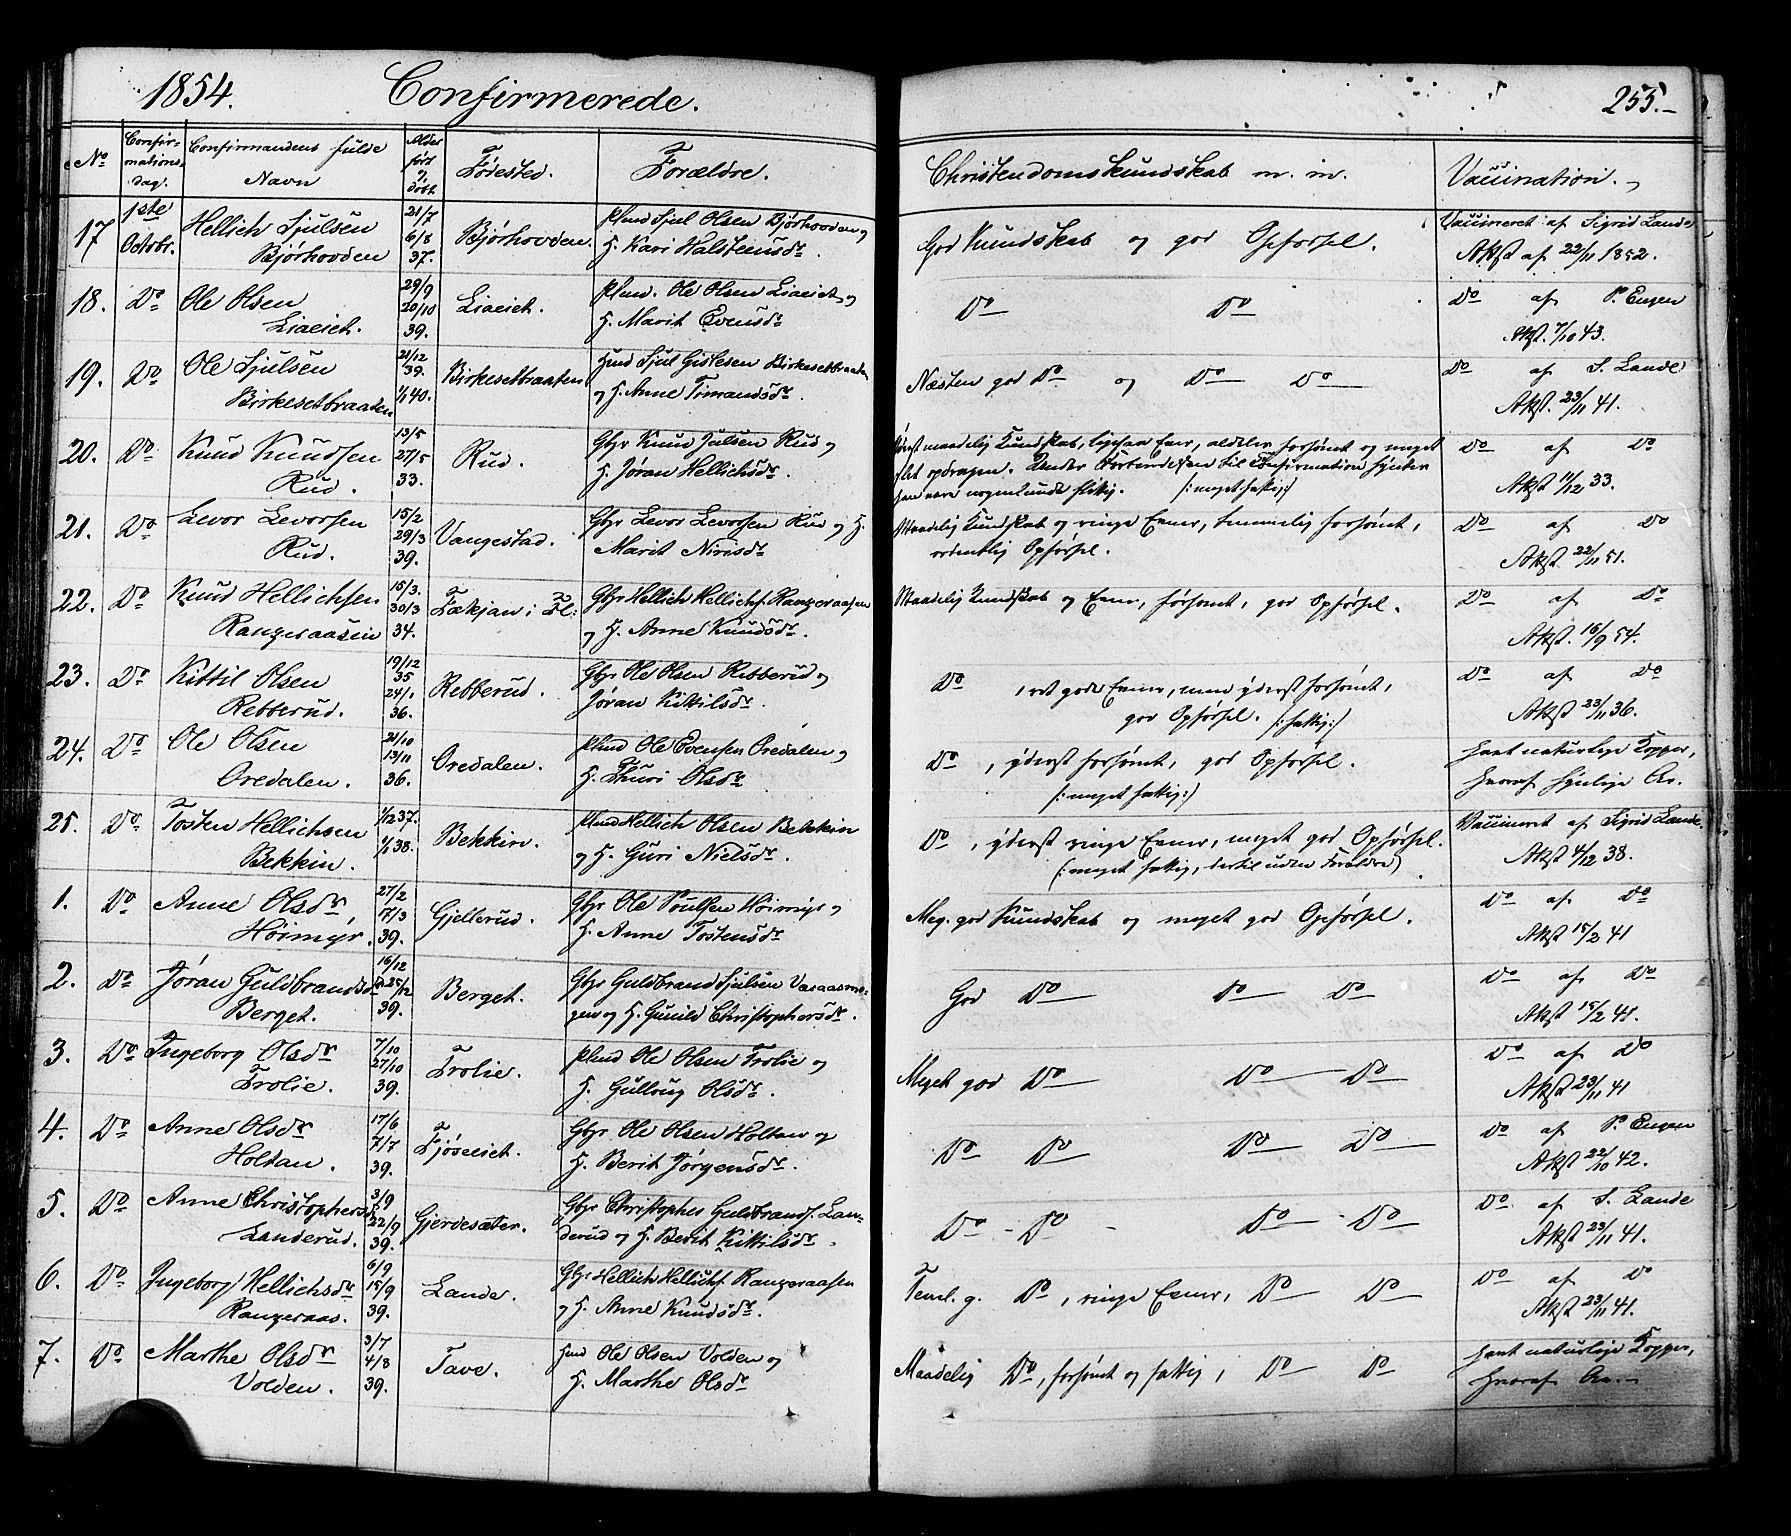 1854. Confirmerede. 255.-
No Confirmationsdag. Confirmandens fulde Navn Alder født & døbt Fødested. Forældre. Christendomskundskab m. m. Vaccination.
17 1ste Hellich Sjulsen 21/7 Bjørhovden. Sjul Olsen Bjørhovden og God Kundskab og god Opførsel. Vaccineret af Sigrid Lande
Octobr. Bjørhovden 6/8 37. H. Kari Halstensdr. Atkst af 22/11 1852.
18. Do Ole Olsen 29/9 Liaeiet. Ole Olsen Liaeiet og Do Do Do af P. Engen
Liaeiet. 20/10 39. H. Marit Evensdr Atkst. 7/10 43.
19. Do Ole Sjulsen 21/12 39. Birkesetbraaten Hmd Sjul Gislesen Birkesetbraaten Næsten god Do og Do Do Do af S. Lande
Birkesetbraaten 1/1 40. og H. Anne Tomandsdr. Atkst. 23/11 41.
20. Do Knud Knudsen 13/5 Rud. Gbr Knud Julsen Rud og maadelig Kundskab, ligesaa Evner, aldeles forsømt og meget Do af Do
Rud. 27/5 33. H. Jøran Hellichsdr. slet opdragen. Under Forberedelsen til Confirmation synes han være nogenlunde flittig. (: meget fattig :) Atkst 11/12 33.
21. Do Levor Levorsen 15/2 Vangestad. Gbr Levor Levorsen Rud og H. Maadelig Kundskab og ringe Evner, temmelig forsømt, Do af Do
Rud. 29/3 39. Marit Nirisdr ordentlig Opførsel. Atkst 22/11 51.
22. Do Knud Hellichsen 15/3. Tækjan i Fl: Gbr Hellich Hellichs. Rangeraasen Maadelig Kundskab og Evner, forsømt, god Opførsel. Do af Do
Rangeraasen 30/3 34. og H. Anne Knudsdr. Atkst. 16/9 54.
23. Do Kittil Olsen 19/12 35 Rebberud. Gbr Ole Olsen Rebberud og Do , ret gode Evner, men yderst forsømt, Do af Do
Rebberud. 24/1 36. Jøran Kittilsdr. god Opførsel. (: fattig :) Atkst 23/11 36.
24. Do Ole Olsen 21/10 Oredalen. Ole Evensen Oredalen og Do , yderst forsømt, god Opførsel. havt naturlige Kopper,
Oredalen. 13/11 36. H. Thuri Olsdr (: meget fattig :) hvoraf synlige Ar.
25. Do Tosten Hellichsen 1/12 37. Bekkin. Hellich Olsen Bekkin Do , yderst ringe Evner, meget god Opførsel. Vaccineret af Sigrid Lande.
Bekkin. 1/1 38. og H. Guri Nielsdr. (: meget fattig, dertil uden Forældre) Atkst 4/12 38.
1. Do Anne Olsdr, 27/2 Gjellerud. Gbr Ole Poulsen Høimyr og Meg. god Kundskab og meget god Opførsel. Do af Do
Høimyr. 17/3 39. H. Anne Tostensdr. Atkst 15/2 41
2. Do Jøran Guldbrandsdr 16/12 Berget. Gbr Guldbrand Sjulsen Vasaasmo- God Do Do Do Do af Do
Berget. 25/12 39. gen og H. Gunild Christophersdr. Atkst 15/2 41.
3. Do Ingeborg Olsdr 7/10 Trolie. Ole Olsen Trolie og Meget god Do Do Do Do af Do
Trolie. 27/10 39. H. Gullaug Olsdr. Atkst 23/11 41
4. Do Anne Olsdr 17/6 Fjøseiet. Gbr Ole Olsen Holtan og Do Do Do Do Do af P. Engen
Holtan. 7/7 39. H. Berit Jørgensdr. Atkst 22/10 42.
5. Do Anne Christophersdr 3/9 Gjerdesæter. Gbr Christopher Guldbrands. Lan- Do - Do - Do - Do Do af S. Lande
Landerud. 22/9 39. derud og H. Berit Kittilsdr. Atkst 23/11 41.
6. Do Ingeborg Hellichsdr 6/9 Lande. Gbr Hellich Hellichs. Rangeraasen Teml. g. Do, ringe Evner, Do Do Do af Do
Rangeraas. 15/9 39. og H. Anne Knudsdr. Atkst 23/11 41.
7. Do Marthe Olsdr 3/7 Tave. Hmd Ole Olsen Volden og Maadelig Do, forsømt og fattig, Do Do havt naturlige Kopper,
Volden. 4/8 39. H. Marthe Olsdr hvoraf Ar.-